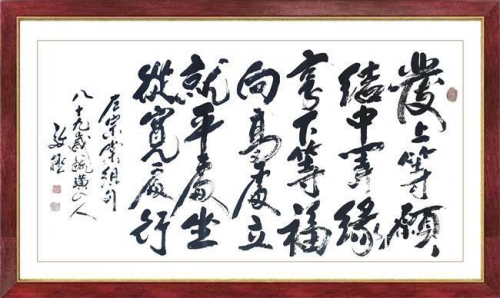 發上等願
結中等緣
享下等福
向高處立
就平處坐
從寬處行
左宗棠組句
八十九歲
人